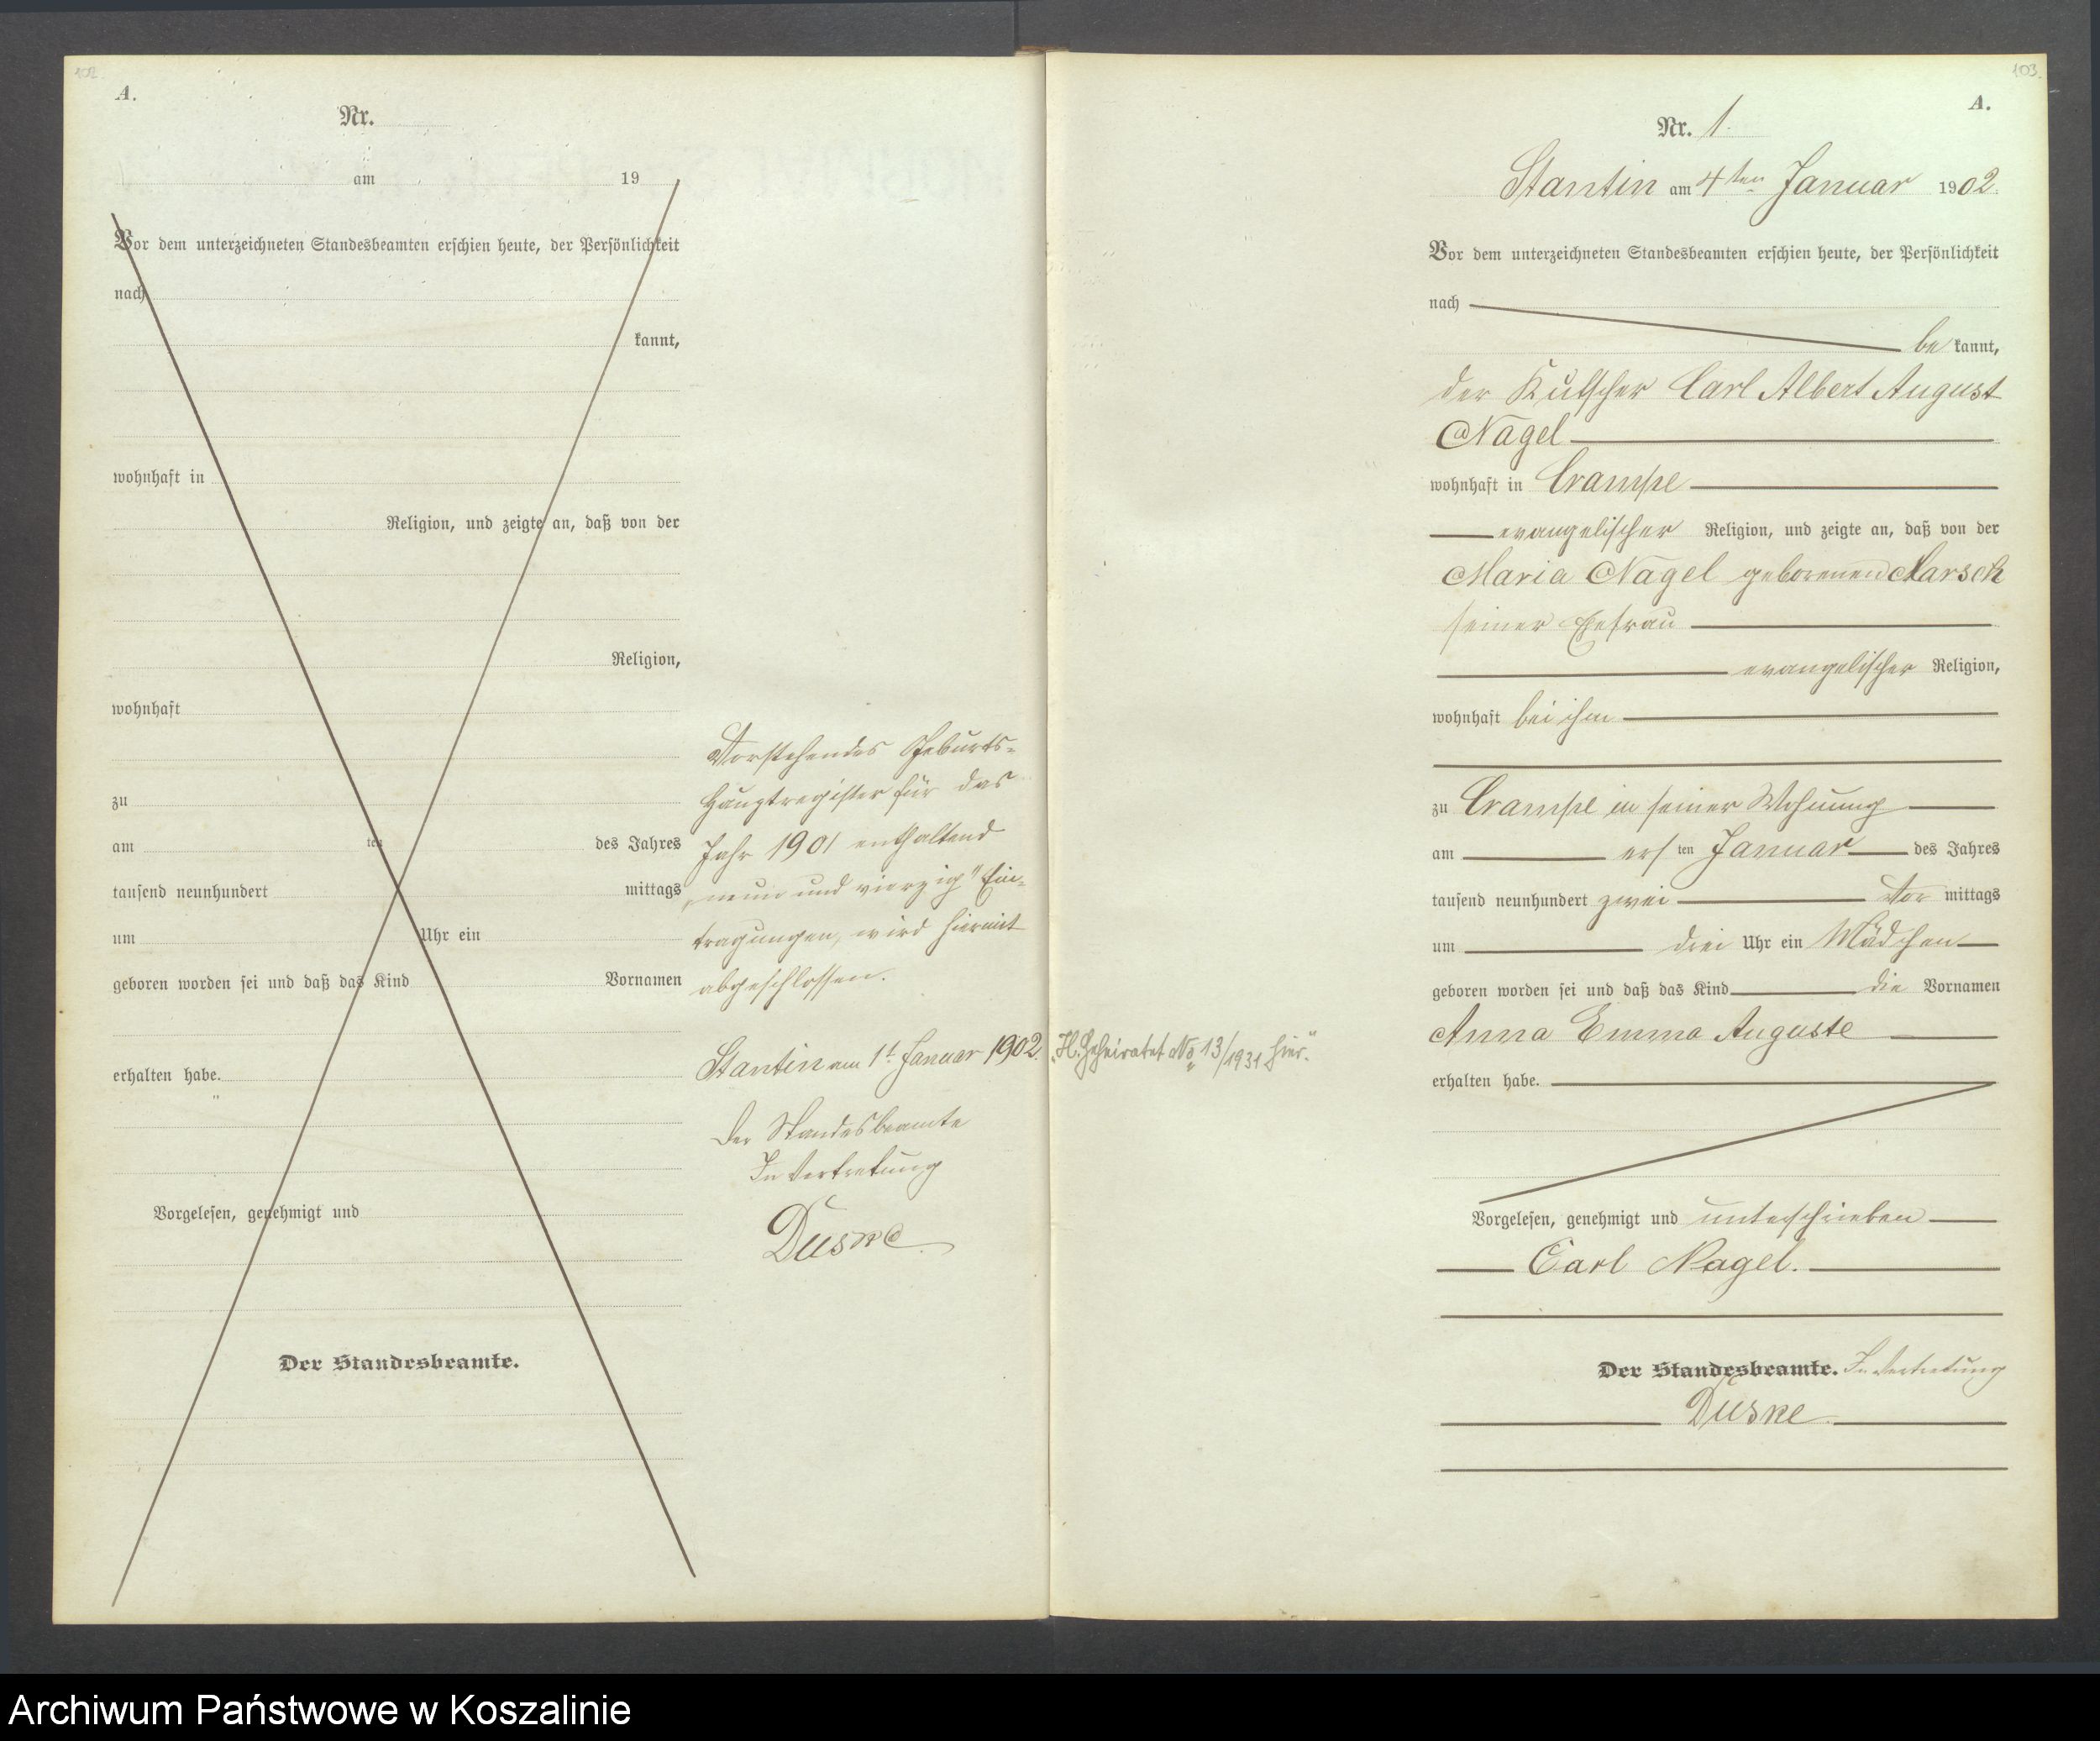 102.
A.
Nr.
am 19
Vor dem unterzeichneten Standesbeamten erschien heute, der Persönlichkeit
nach
kannt,
wohnhaft in
Religion, und zeigte an, daß von der
Religion,
wohnhaft
zu
am ten des Jahres
tausend neunhundert mittags
um Uhr ein
geboren worden sei und daß das Kind Vornamen
erhalten habe.
Vorgelesen, genehmigt und
Der Standesbeamte.
Vorstehendes Geburts-
Hauptregister für das
Jahr 1901 enthaltend
„neun und vierzig" Ein-
tragungen, wird hiermit
abgeschlossen.
Stantin am 1t Januar 1902.
Der Standesbeamte
In Vertretung
Duske
103.
A.
Nr. 1.
Stantin am 4ten Januar 1902.
Vor dem unterzeichneten Standesbeamten erschien heute, der Persönlichkeit
nach
be kannt,
der Kutscher Carl Albert August
Nagel
wohnhaft in Crampe
evangelischer Religion, und zeigte an, daß von der
Maria Nagel geborenen
seiner Ehefrau
evangelischer Religion,
wohnhaft bei ihm
zu Crampe in seiner Wohnung
am ers ten Januar des Jahres
tausend neunhundert zwei Vor mittags
um drei Uhr ein Mädchen
geboren worden sei und daß das Kind die Vornamen
Anna Emma Auguste
erhalten habe.
„H. Geheiratet No 13/1931 hier."
Vorgelesen, genehmigt und unterschrieben
Carl Nagel.
Der Standesbeamte. In Vertretung
Duske
Archiwum Państwowe w Koszalinie